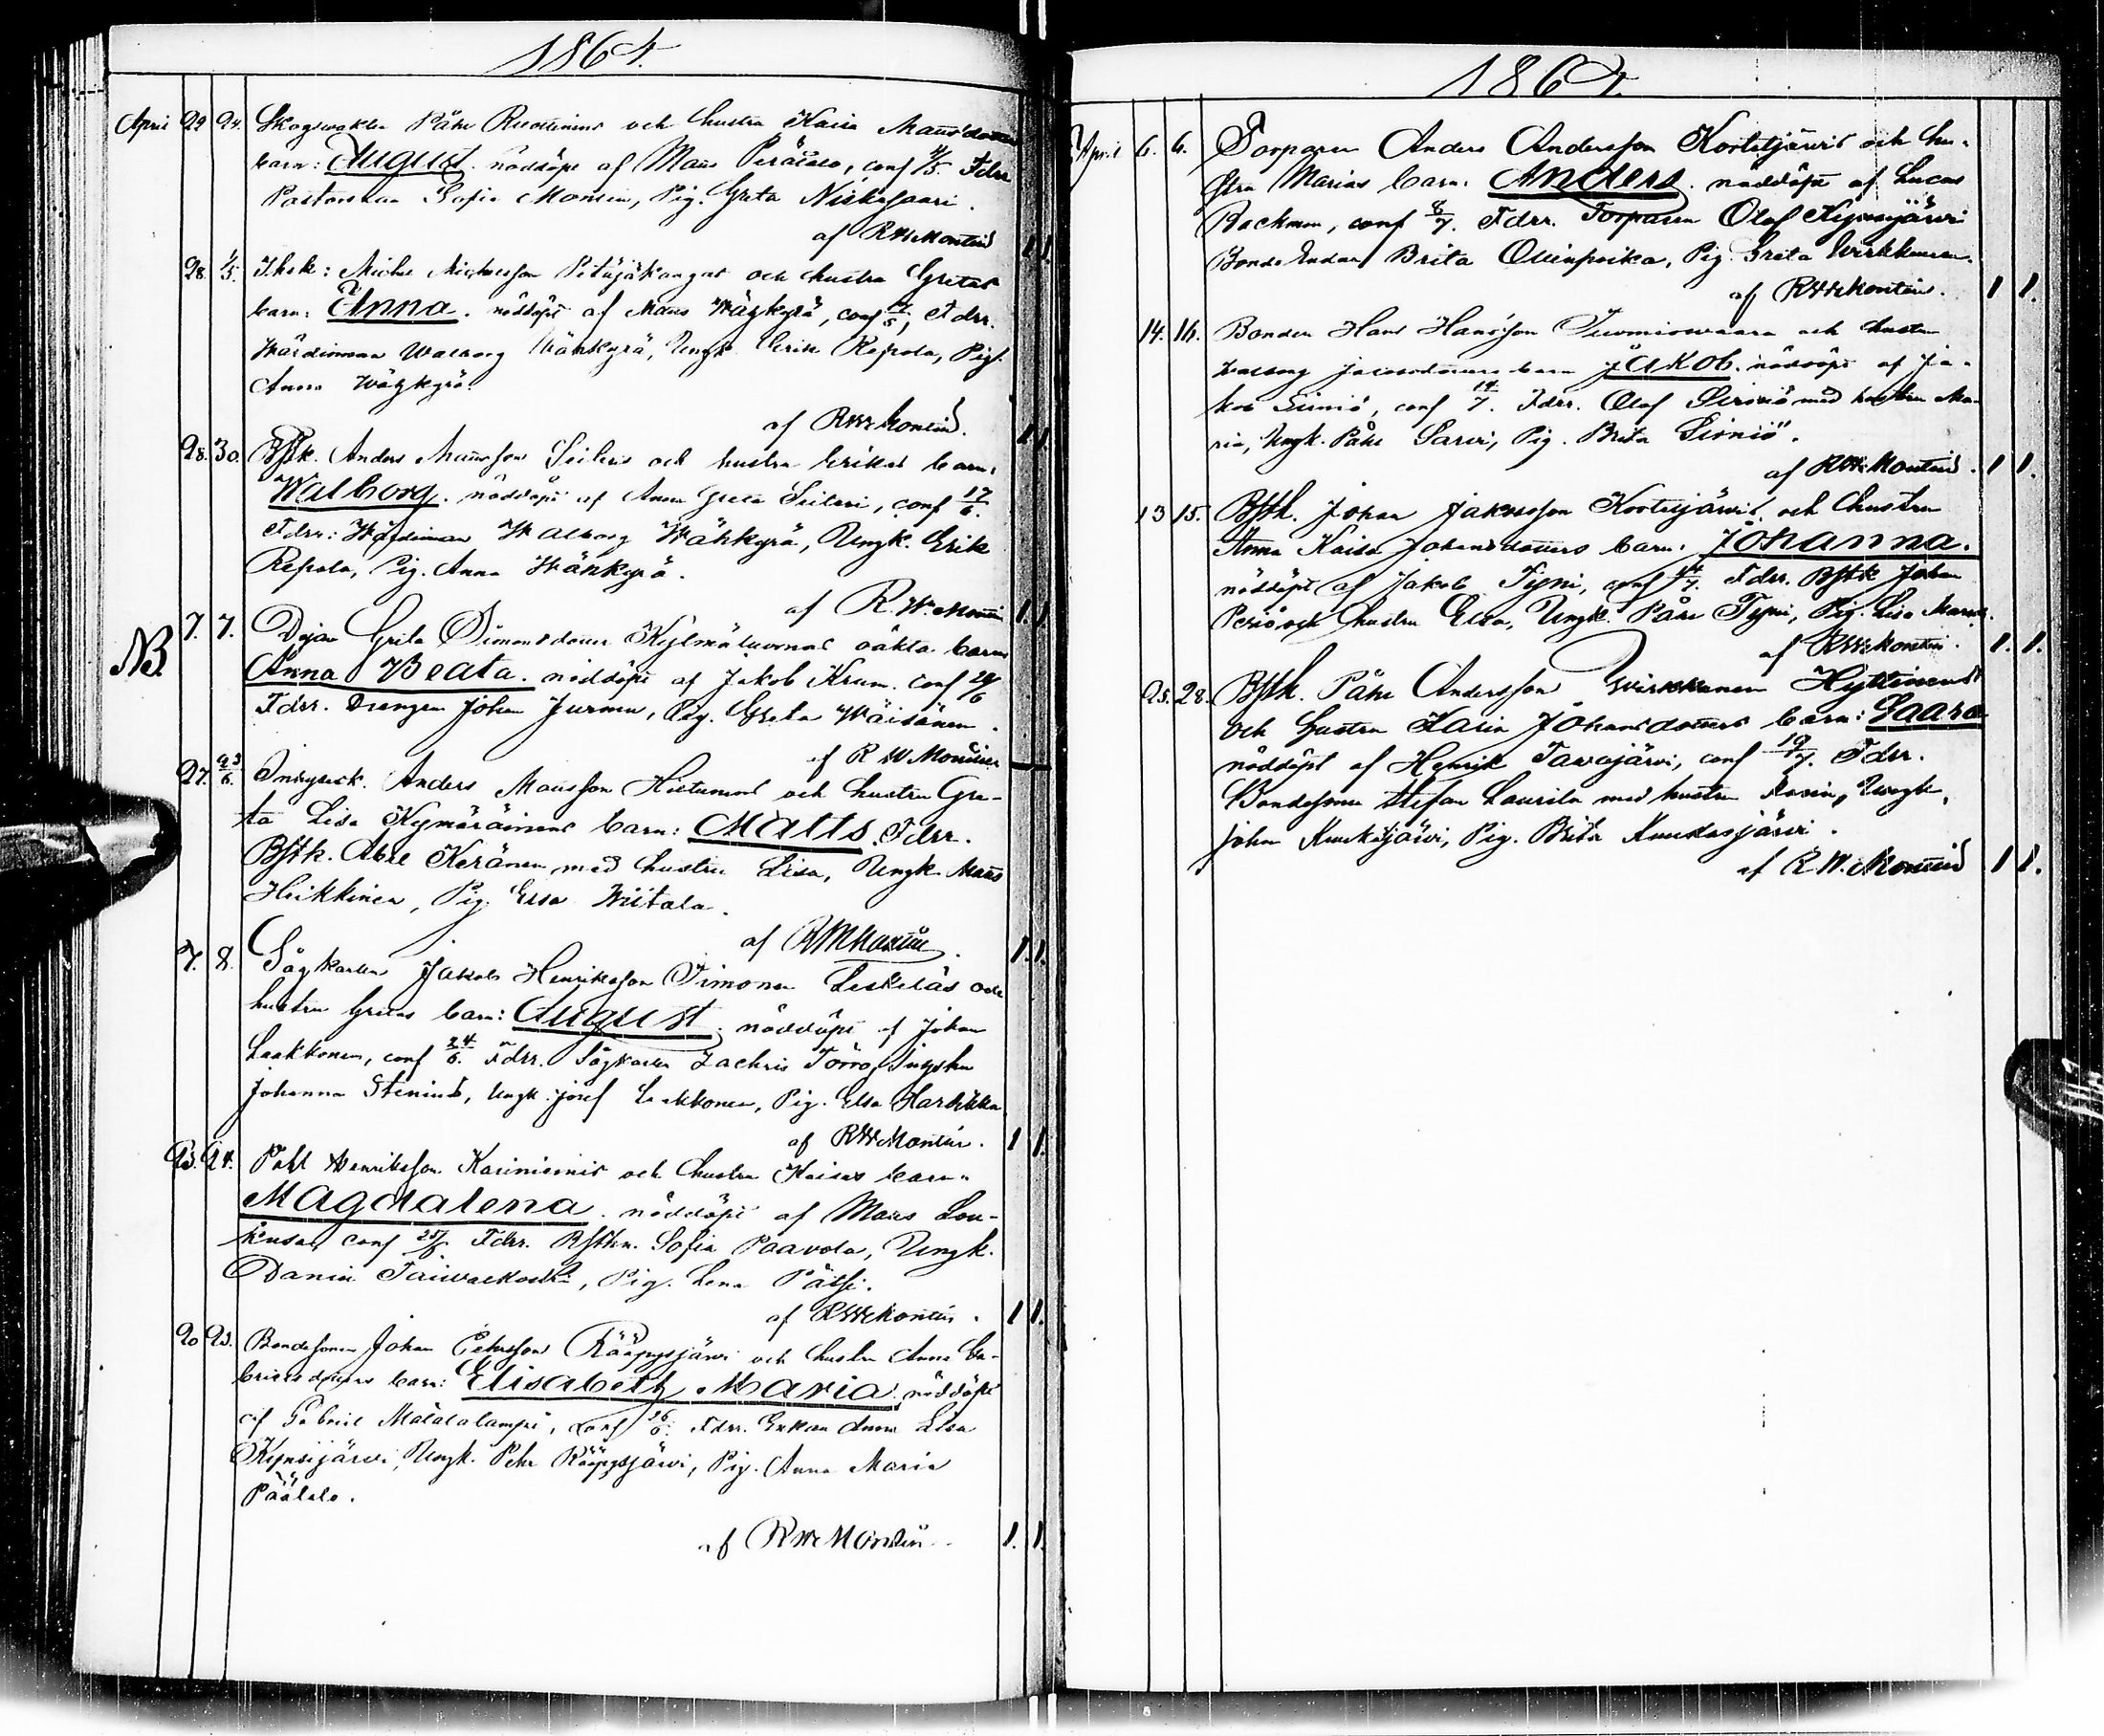 1864.
April 22 24. Skogswakten Påhr Ruottinens och hustru Kaisa Mansdotters
barn: August. nöddöpt af Mans Perätalo, conf /5. Fdrr
Pastorskan Sofia Montin, Pig. Greta Niskasaari.
af RWMontin 1 1.
28. 1/5. Michel Michelsson Pitäjäkangas och hustru Gretas
barn: Anna. nöddöpt af Mans Wäyhkyrä, conf /5, Fdrr.
Wärdinnan Walborg Wähkyrä, Ungk. Erik Repola, Pig.
Anna Wäyhkyrä.
af RWMontin. 1 1.
28. 30. Bstk. Anders Mansson Seiteris och hustru Erikas barn:
Walborg. nöddöpt af Anna Greta Seiteri, conf 17/6.
Fdrr: Wärdinnan Walborg Wähkyrä, Ungk. Erik
Repola, Pig. Anna Wähkyrä.
af R.W.Montin 1. 1.
NB. 7. 7. Dejan Greta Simonsdotter Kylmäluomas oäkta barn
Anna Beata. nöddöpt af Jakob Krum. conf 24/6
Fdrr. Drengen Johan Jurmu, Pig. Greta Wäisänen.
af R W Montin
27. 23/6. Inhysesk. Anders Mansson Hietamas och hustru Gre-
ta Lisa Kymäräinens barn: Matts. Fdrr.
Bstk. Abel Keränen med hustru Lisa, Ungk. Mans
Heikkinen, Pig. Elsa Wiitala.
af RWMontin. 1. 1.
7. 8. Sågkarlen Jakob Henriksson Timonen Leskeläs och
hustru Gretas barn: August. nöddöpt af Johan
Laakkonen, conf 24/6. Fdrr. Sågkarlen Zachris Törrö, Inhysku
Johanna Stenius, Ungk. Josef Lakkonen, Pig. Elsa Harikka
af RWMontin. 1 1.
23. 24. Påhl Henriksson Kariniemis och hustru Kaisas barn:
Magdalena. nöddöpt af Mans Lou-
kusa, conf 25/6. Fdrr. Bstkn. Sofia Paavola, Ungk.
Daniel Taiwalkoski, Pig. Lena Pätsi.
af RWMontin. 1 1.
20 23. Bondesonen Johan Pehrsson Rääpysjärvi och hustru Anna Ga-
brielsdotters barn: Elisabeth Maria. nöddöpt
af Gabriel Mätälalampi, conf 26/6. Fdrr. Enkan Anna Lisa
Kynsijärvi, Ungk. Pehr Rääpysjärvi, Pig. Anna Maria
Päätalo.
af RWMontin 1. 1.
1864.
April 6. 6. Torparen Anders Andersson Kortetjärvis och hu-
stru Marias barn: Anders. nöddöpt af Lucas
Backman, conf 8/7. Fdrr. Torparen Olof Kynsijärvi
Bonde Enkan Brita Ollinpoika, Pig. Greta Wirkkunen.
af RWMontin. 1 1.
14. 16. Bonden Hans Hansson Tuomiowaara och hustru
Walborg Jacobsdotters barn Jakob. nöddöpt af Ja-
kob Sirniö, conf 14/7. Fdrr. Olof Sirniö med hustru Ma-
ria, Ungk. Påhl Sarvi, Pig. Brita Sirniö.
af RWMontin. 1 1.
13 15. Bstk. Johan Jakobsson Kortetjärvis och hustru
Anna Kaisa Johansdotters barn: Johanna.
nöddöpt af Jakob Tyni, conf 14/7. Fdrr. Bstk Johan
Periö och hustru Elsa, Ungk. Påhl Tyni, Pig. Lisa
af RWMontin. 1. 1.
25. 28. Bstk. Påhl Andersson Wirkkunen Hyttinens
och hustru Karin Johansdotters barn: Saara
nöddöpt af Henrik Tavajärvi, conf 19/7. Fdrr.
Bondesonen Stefan Laurila med hustru Karin, Ungk.
Johan Kuukasjärvi, Pig. Brita Kuukasjärvi.
af R.W.Montin 1 1.